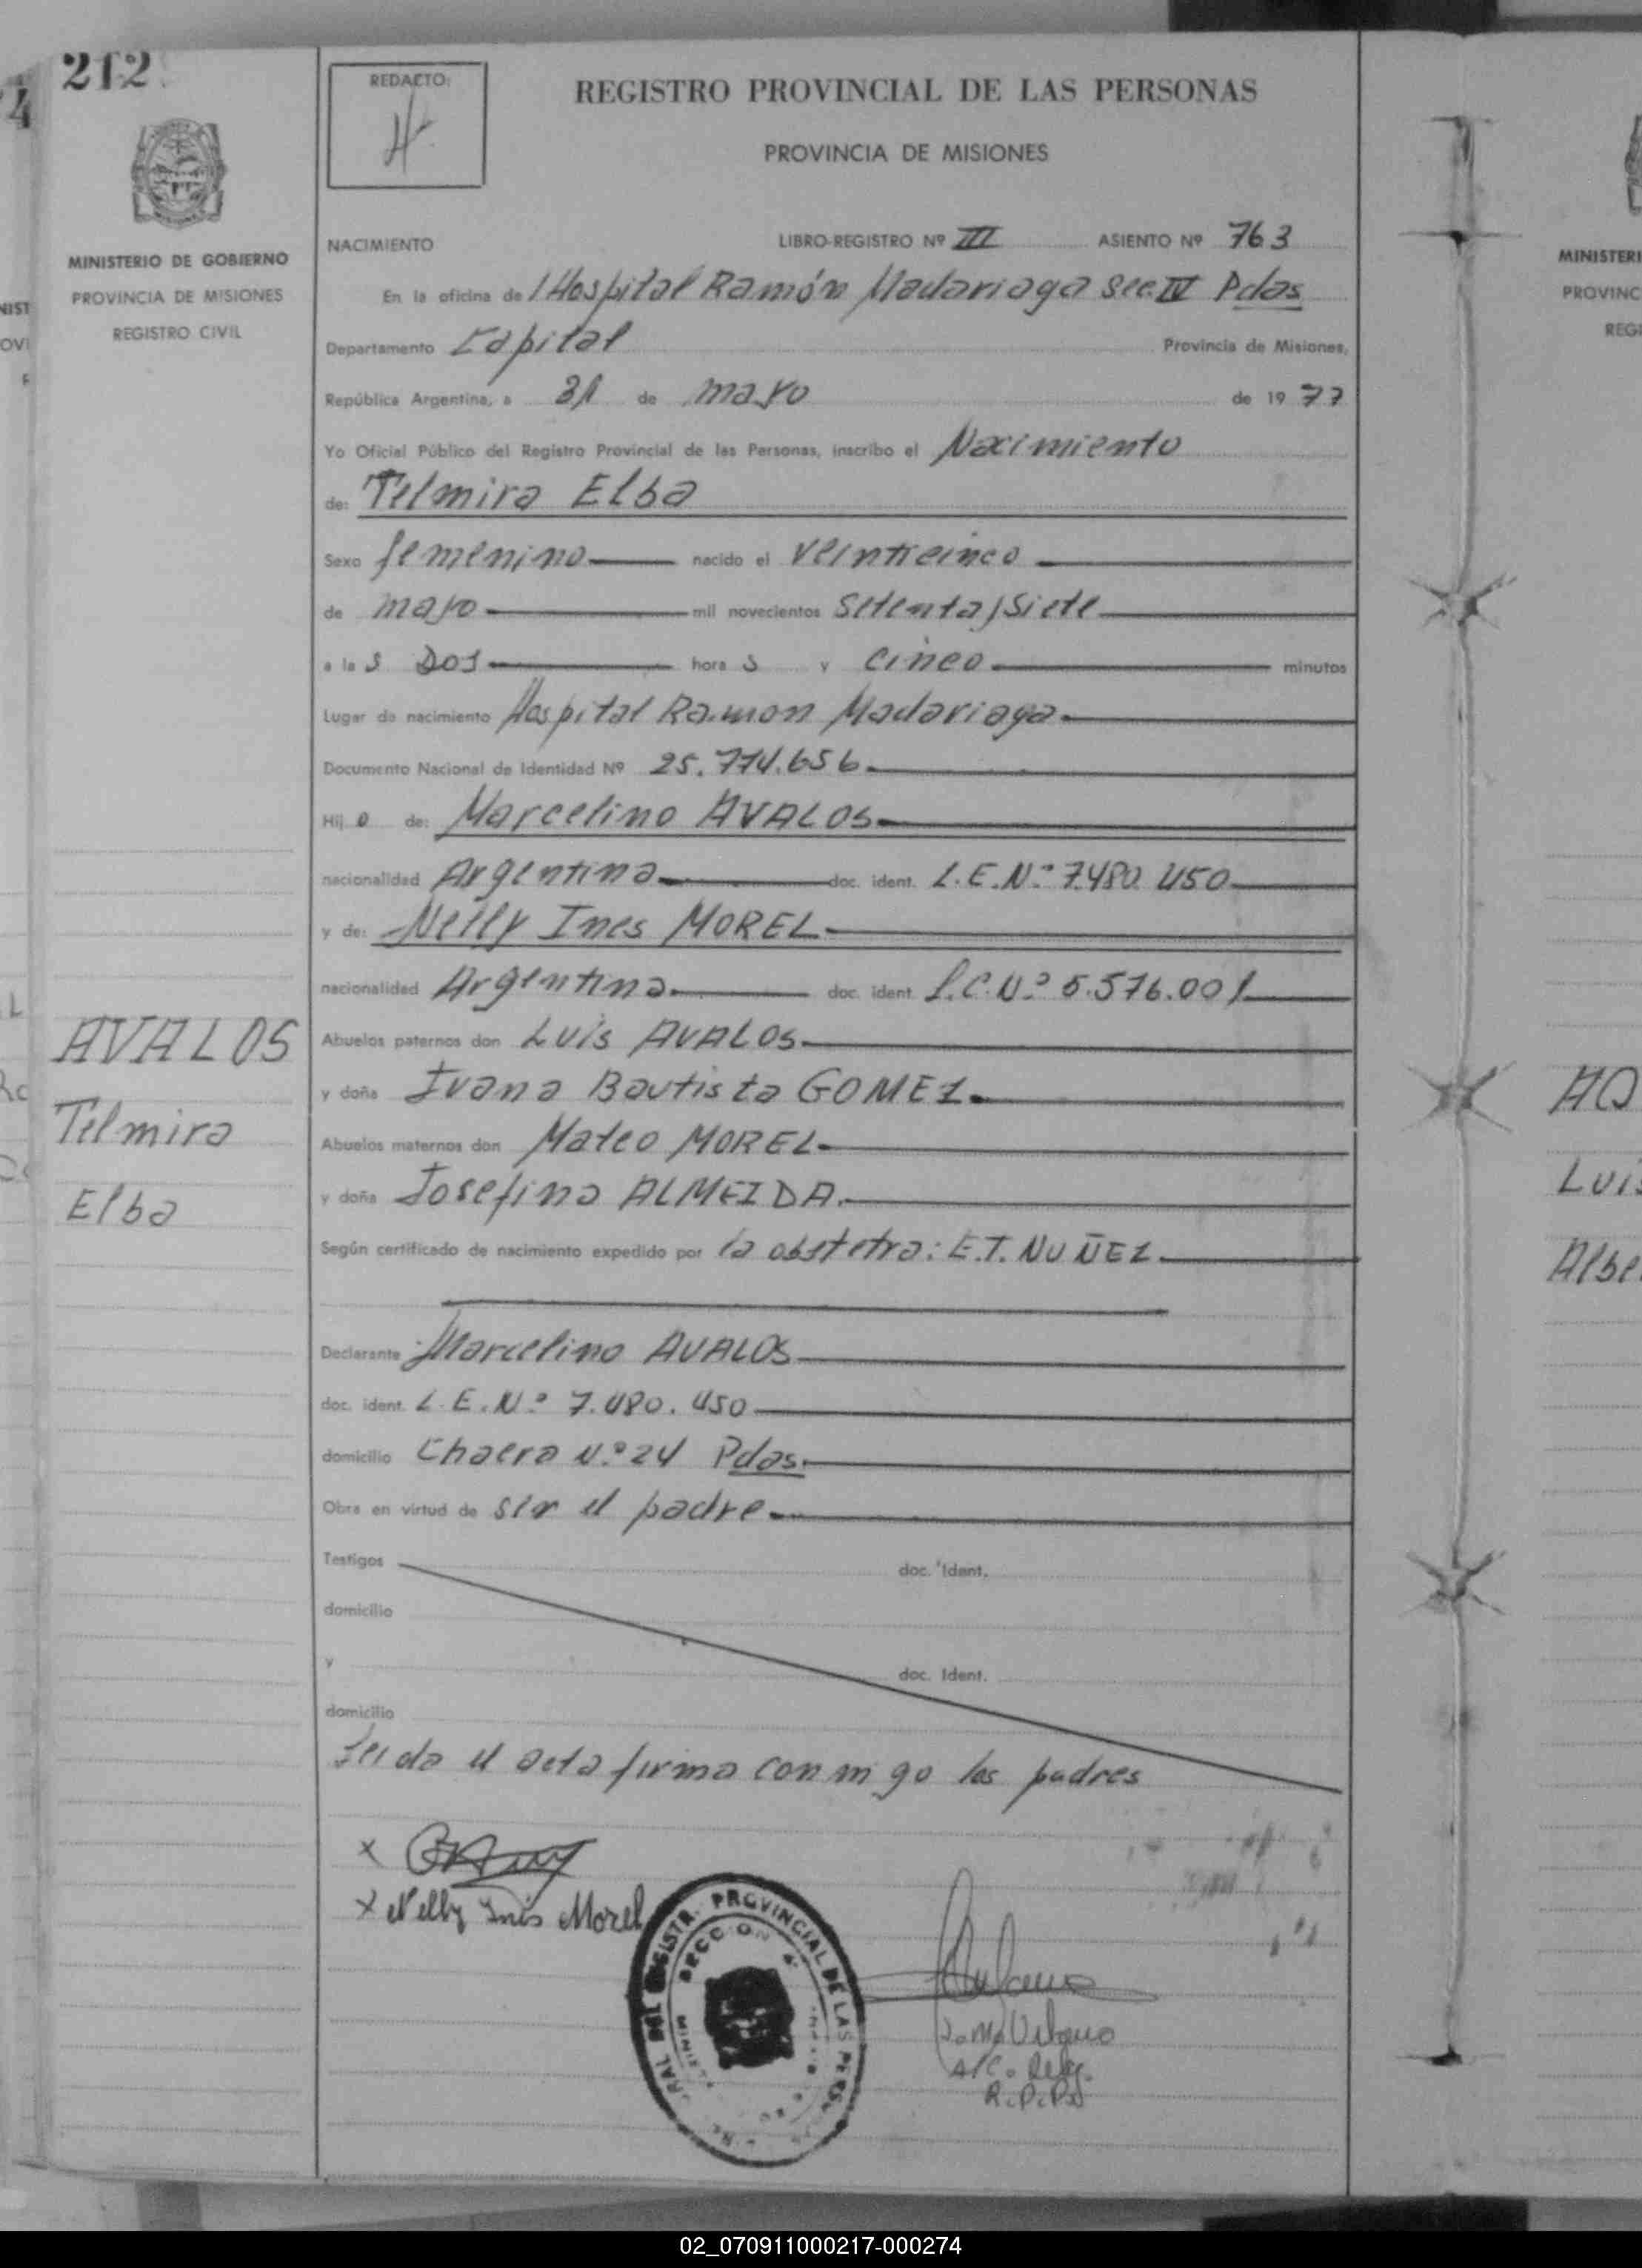 212
REDACTO:
REGISTRO PROVINCIAL DE LAS PERSONAS
PROVINCIA DE MISIONES
MINISTERIO DE GOBIERNO
PROVINCIA DE MISIONES
REGISTRO CIVIL
NACIMIENTO LIBRO-REGISTRO Nº III ASIENTO Nº 763
En la oficina de l Hospital Ramón Madariaga Sec. IV Pdas
Departamento Capital Provincia de Misiones,
República Argentina, a 31 de mayo de 1977
Yo Oficial Público del Registro Provincial de las Personas, inscribo el Nacimiento
de: Telmira Elba
Sexo femenino nacido el veinticinco
de mayo mil novecientos setenta y siete
a la s DOS hora s y cinco minutos
Lugar de nacimiento Hospital Ramon Madariaga
Documento Nacional de Identidad Nº 25.774.656
Hij a de: Marcelino AVALOS
nacionalidad Argentina doc. ident. L.E.Nº 7.480.450
y de: Nelly Ines MOREL
nacionalidad Argentina doc. ident. L.C.Nº 5.576.001
Abuelos paternos don Luis AVALOS
y doña Juana Bautista GOMEZ
Abuelos maternos don Mateo MOREL
y doña Josefina ALMEIDA
Según certificado de nacimiento expedido por la obstetra: E.T. NUÑEZ
Declarante Marcelino AVALOS
doc. ident. L.E.Nº 7.480.450
domicilio Chacra Nº 24 Pdas.
Obra en virtud de ser el padre
Testigos doc. Ident.
domicilio
y doc. Ident.
domicilio
Leida el acta firma conmigo los padres
x
x Nelly Inés Morel
AVALOS
Telmira
Elba
REGISTR. PROVINCIAL DE LAS PERS.
R.P.Ps
MINISTERI
PROVINC
REGI
Luis
02_070911000217-000274